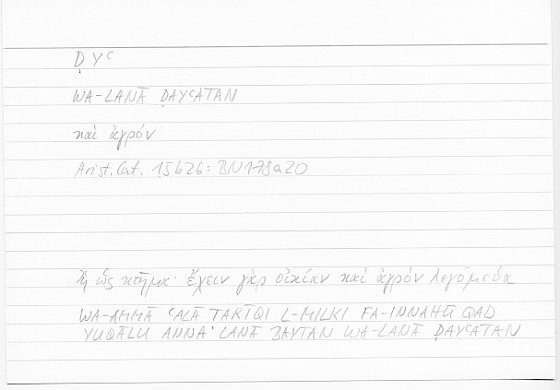 ḌYꜤ
WA-LANĀ ḌAYꜤATAN
καὶ ἀγρόν
Arist. Cat. 15b26: BN178a20
ἢ ὡς κτῆμα· ἔχειν γὰρ οἰκίαν καὶ ἀγρὸν λεγόμεθα
WA-AMMĀ ꜤALĀ ṬARĪQI L-MILKI FA-INNAHŪ QAD
YUQĀLU ANNA LANĀ BAYTAN WA-LANĀ ḌAYꜤATAN